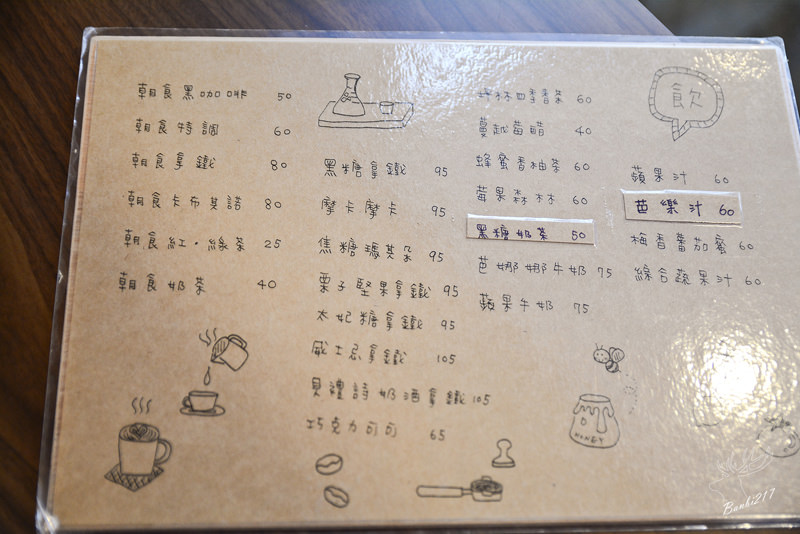 朝食黑咖啡 50
朝食特調 60
朝食拿鐵 80
朝食卡布其諾 80
朝食紅・綠茶 25
朝食奶茶 40
黑糖拿鐵 95
摩卡摩卡 95
焦糖瑪其朵 95
栗子堅果拿鐵 95
太妃糖拿鐵 95
威士忌拿鐵 105
貝禮詩奶酒拿鐵 105
巧克力可可 65
坪林四季香茶 60
蔓越莓醋 40
蜂蜜香柚茶 60
莓果森林 60
黑糖奶茶 50
芭娜娜牛奶 75
蘋果牛奶 75
飲
蘋果汁 60
芭樂汁 60
梅香蕃茄蜜 60
綜合蔬果汁 60
HONEY
Banbi217